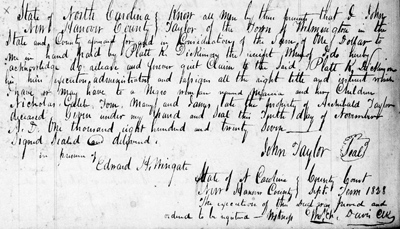 State of North Carolina } Know all men by these presents that I John
New Hanover County } Taylor of the Town of Wilmington in the
State and County aforesaid in Consideration of the Sum of One Dollar to
me in hand paid by Platt K. Dickinson the receipt whereof I do hereby
acknowledge do release and forever quit Claim to the said Platt K Dickinson
his heirs executors, administrators and assigns all the right title and interest which
I have or may have to a Negro woman named and her Children
Nicholas, Caleb, Tom, Mary and James late the property of Archibald Taylor
deceased Given under my hand and Seal this Tenth day of November
A. D. One thousand eight hundred and twenty Seven
Signed Sealed and delivered
in presence of
John Taylor (Seal)
Edward H. Wingate
State of N Carolina } County Court
New Hanover County } Sept Term 1828
The execution of this Deed was proved and
ordered to be registered — Witness Thos. F. Davis Clk